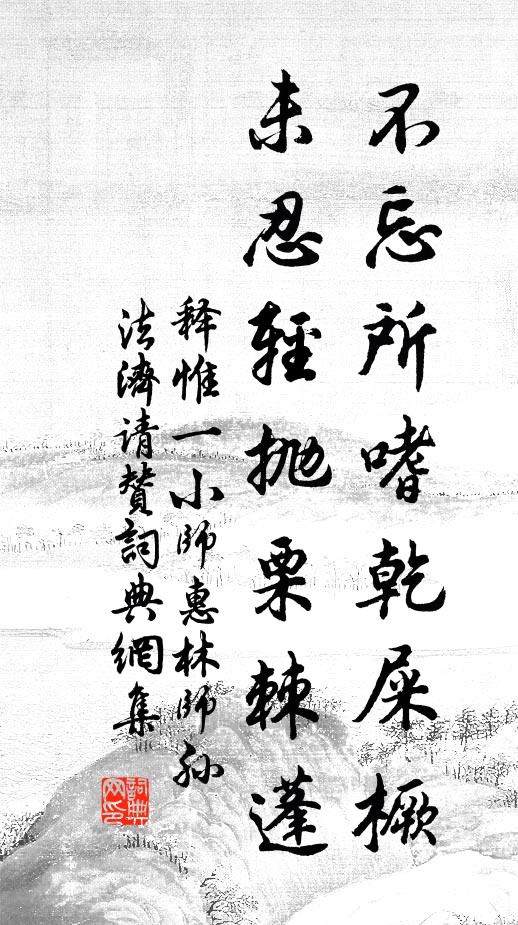 不忘所嗜乾屎橛
未忍輕抛栗棘蓬
释惟一小師惠林師孙
法濟请赞詞典網集
詞典
网印